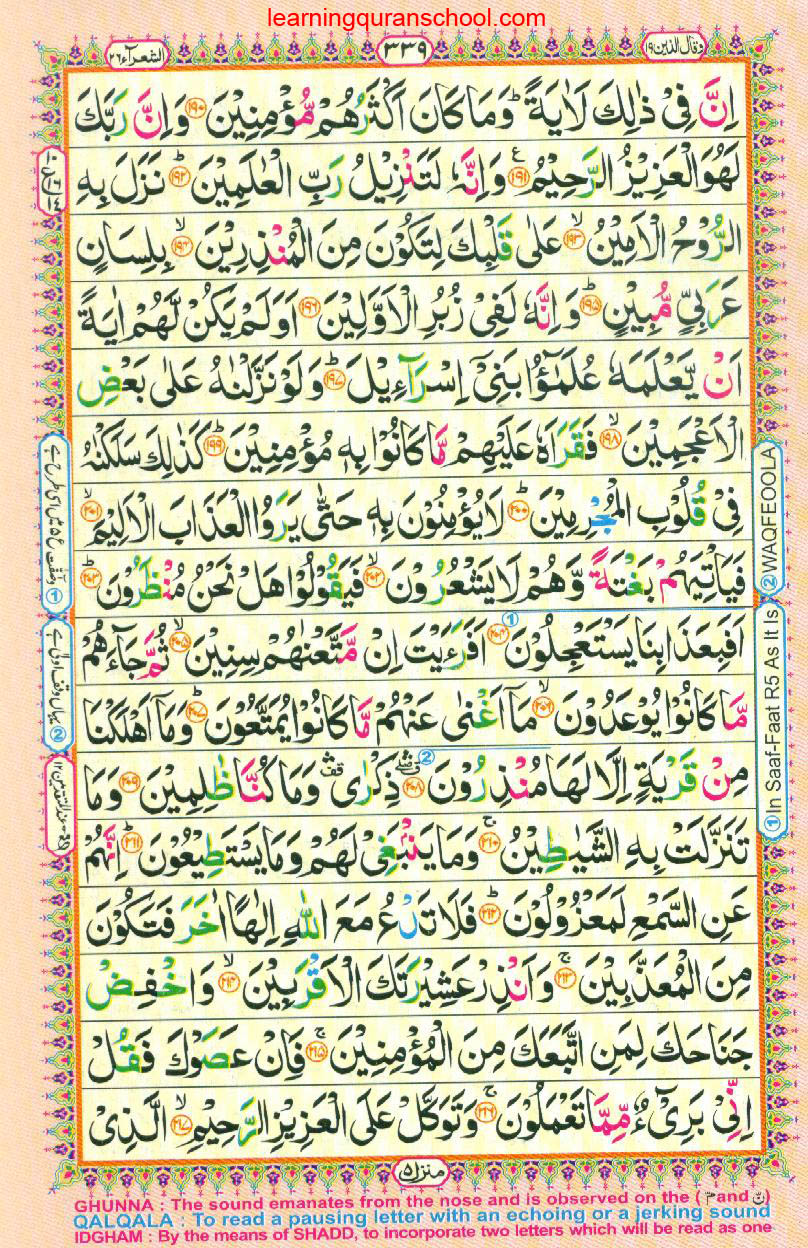 learningquranschool.com
وقال الذين ١٩
٣٣٩
الشعرآء ٢٦
اِنَّ فِىْ ذٰلِكَ لَاٰيَةً ؕ وَمَا كَانَ اَكْثَرُهُمْ مُّؤْمِنِيْنَ ﴿١٩٠﴾ وَاِنَّ رَبَّكَ
لَهُوَ الْعَزِيْزُ الرَّحِيْمُ ﴿١٩١﴾ وَاِنَّهٗ لَتَنْزِيْلُ رَبِّ الْعٰلَمِيْنَ ؕ ﴿١٩٢﴾ نَزَلَ بِهِ
الرُّوْحُ الْاَمِيْنُ ۙ ﴿١٩٣﴾ عَلٰى قَلْبِكَ لِتَكُوْنَ مِنَ الْمُنْذِرِيْنَ ۙ ﴿١٩٤﴾ بِلِسَانٍ
عَرَبِىٍّ مُّبِيْنٍ ؕ ﴿١٩٥﴾ وَاِنَّهٗ لَفِىْ زُبُرِ الْاَوَّلِيْنَ ﴿١٩٦﴾ اَوَلَمْ يَكُنْ لَّهُمْ اٰيَةً
اَنْ يَّعْلَمَهٗ عُلَمٰٓؤُا بَنِىْۤ اِسْرَآءِيْلَ ؕ ﴿١٩٧﴾ وَلَوْ نَزَّلْنٰهُ عَلٰى بَعْضِ
الْاَعْجَمِيْنَ ۙ ﴿١٩٨﴾ فَقَرَاَهٗ عَلَيْهِمْ مَّا كَانُوْا بِهٖ مُؤْمِنِيْنَ ؕ ﴿١٩٩﴾ كَذٰلِكَ سَلَكْنٰهُ
فِىْ قُلُوْبِ الْمُجْرِمِيْنَ ؕ ﴿٢٠٠﴾ لَا يُؤْمِنُوْنَ بِهٖ حَتّٰى يَرَوُا الْعَذَابَ الْاَلِيْمَ ۙ ﴿٢٠١﴾
فَيَاْتِيَهُمْ بَغْتَةً وَّهُمْ لَا يَشْعُرُوْنَ ۙ ﴿٢٠٢﴾ فَيَقُوْلُوْا هَلْ نَحْنُ مُنْظَرُوْنَ ؕ ﴿٢٠٣﴾
اَفَبِعَذَابِنَا يَسْتَعْجِلُوْنَ ① ﴿٢٠٤﴾ اَفَرَءَيْتَ اِنْ مَّتَّعْنٰهُمْ سِنِيْنَ ۙ ﴿٢٠٥﴾ ثُمَّ جَآءَهُمْ
مَّا كَانُوْا يُوْعَدُوْنَ ۙ ﴿٢٠٦﴾ مَاۤ اَغْنٰى عَنْهُمْ مَّا كَانُوْا يُمَتَّعُوْنَ ؕ ﴿٢٠٧﴾ وَمَاۤ اَهْلَكْنَا
مِنْ قَرْيَةٍ اِلَّا لَهَا مُنْذِرُوْنَ ② ﴿٢٠٨﴾ ذِكْرٰى ۛ وَمَا كُنَّا ظٰلِمِيْنَ ﴿٢٠٩﴾ وَمَا
تَنَزَّلَتْ بِهِ الشَّيٰطِيْنُ ۚ ﴿٢١٠﴾ وَمَا يَنْۢبَغِىْ لَهُمْ وَمَا يَسْتَطِيْعُوْنَ ؕ ﴿٢١١﴾ اِنَّهُمْ
عَنِ السَّمْعِ لَمَعْزُوْلُوْنَ ؕ ﴿٢١٢﴾ فَلَا تَدْعُ مَعَ اللّٰهِ اِلٰهًا اٰخَرَ فَتَكُوْنَ
مِنَ الْمُعَذَّبِيْنَ ۚ ﴿٢١٣﴾ وَاَنْذِرْ عَشِيْرَتَكَ الْاَقْرَبِيْنَ ۙ ﴿٢١٤﴾ وَاخْفِضْ
جَنَاحَكَ لِمَنِ اتَّبَعَكَ مِنَ الْمُؤْمِنِيْنَ ۚ ﴿٢١٥﴾ فَاِنْ عَصَوْكَ فَقُلْ
اِنِّىْ بَرِىْٓءٌ مِّمَّا تَعْمَلُوْنَ ۚ ﴿٢١٦﴾ وَتَوَكَّلْ عَلَى الْعَزِيْزِ الرَّحِيْمِ ۙ ﴿٢١٧﴾ الَّذِىْ
① In Saaf-Faat R5 As It Is ② WAQFEOOLA
② یہاں وقف اولیٰ ہے
منزل ٥
GHUNNA : The sound emanates from the nose and is observed on the ( مّ and نّ)
QALQALA : To read a pausing letter with an echoing or a jerking sound
IDGHAM : By the means of SHADD, to incorporate two letters which will be read as one